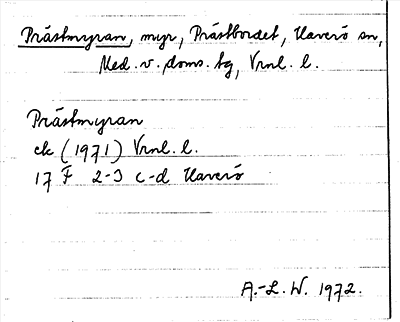 Prästmyran, myr, Prästbordet, Haverö sn,
Med. v. doms. tg, Vrnl. l.
Prästmyran
ek (1971) Vrnl. l.
17 F 2-3 c-d Haverö
A.-L. W. 1972.